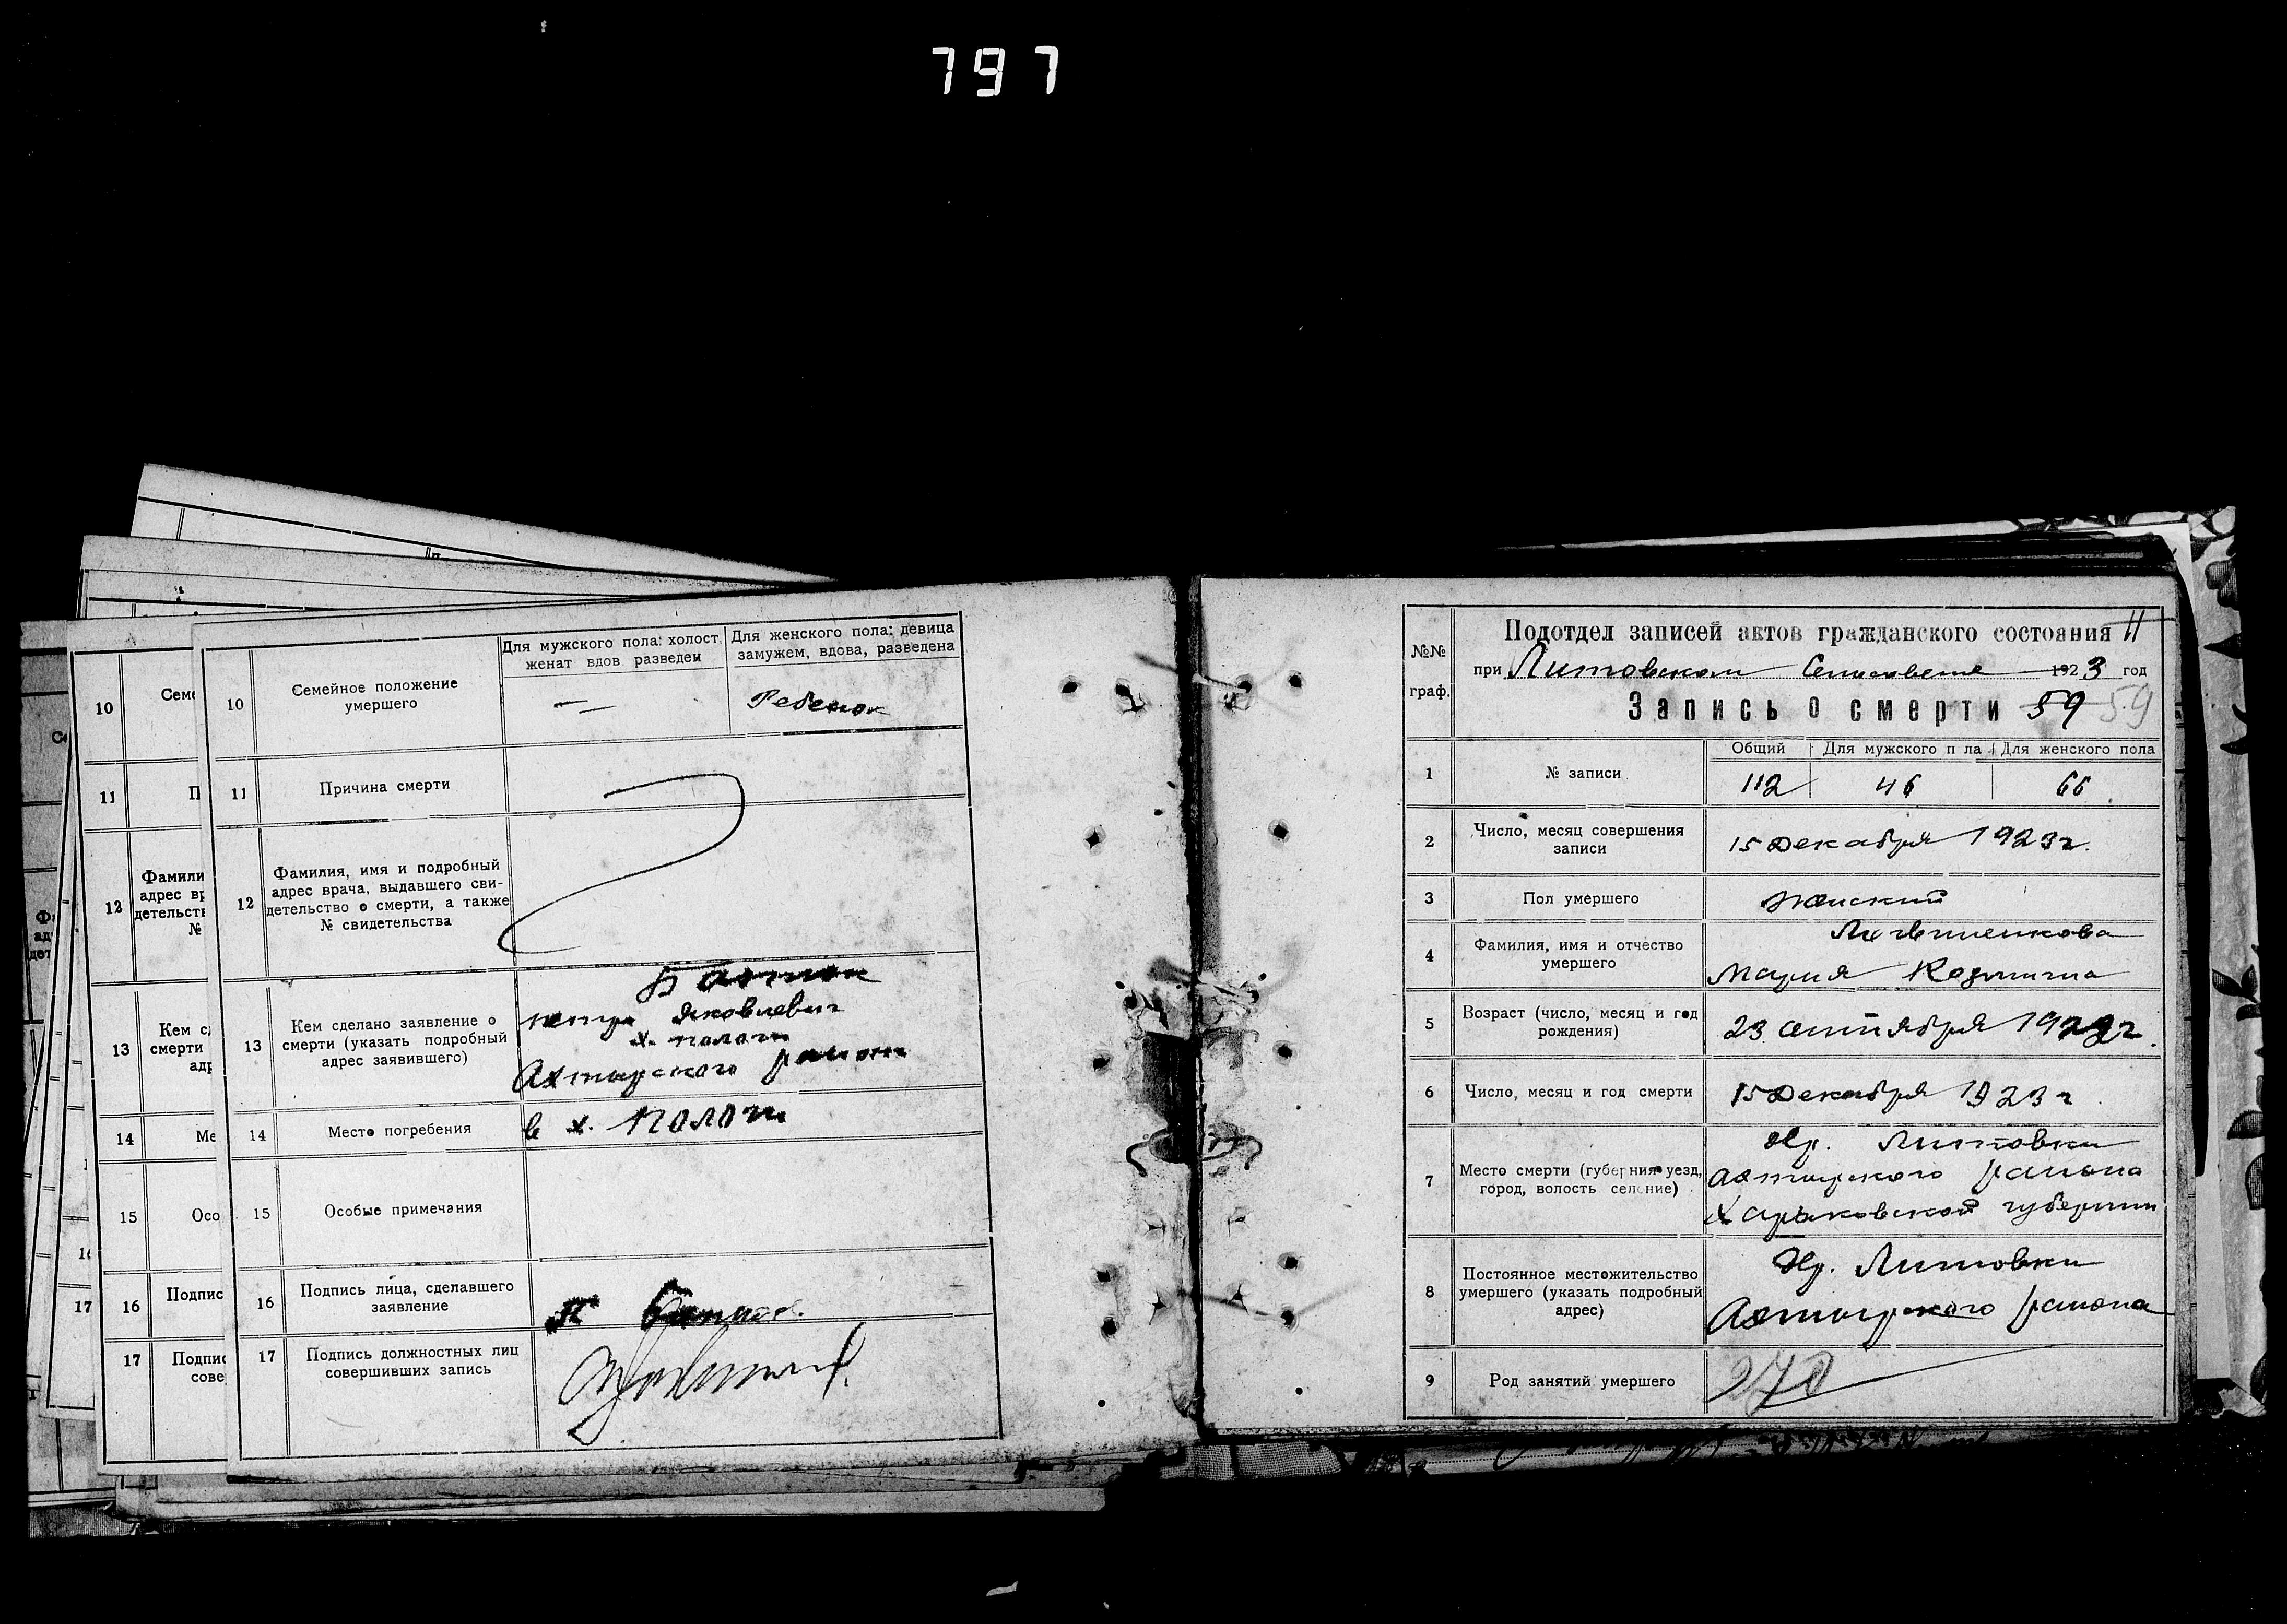 797
10
Семе
11
П
12
Фамили
адрес вр
детельст
№
13
Кем с
смерти
адр
14
Ме
15
Осо
16
Подпис
17
Подпис
сове
Для мужского пола: холост женат вдов разведен
Для женского пола: девица замужем, вдова, разведена
10
Семейное положение
умершего
Ребенок
11
Причина смерти
12
Фамилия, имя и подробный
адрес врача, выдавшего сви-
детельство о смерти, а также
№ свидетельства
13
Кем сделано заявление о
смерти (указать подробный
адрес заявившего)
Яковлевич
Ахтырского района
14
Место погребения
в х.
15
Особые примечания
16
Подпись лица, сделавшего
заявление
17
Подпись должностных лиц
совершивших запись
№№
граф.
Подотдел записей актов гражданского состояния
при Литовском Сельсовете 1923 год
Запись о смерти 59 59
Общий
Для мужского п ла
Для женского пола
1
№ записи
112
46
66
2
Число, месяц совершения
записи
15 Декабря 1923 г.
3
Пол умершего
женский
4
Фамилия, имя и отчество
умершего
Мария
5
Возраст (число, месяц и год
рождения)
23 сентября
6
Число, месяц и год смерти
15 Декабря 1923 г.
7
Место смерти (губерния уезд,
город, волость селение)
Литовки
Ахтырского района
Харьковской губернии
8
Постоянное местожительство
умершего (указать подробный
адрес)
Литовки
Ахтырского района
9
Род занятий умершего
270